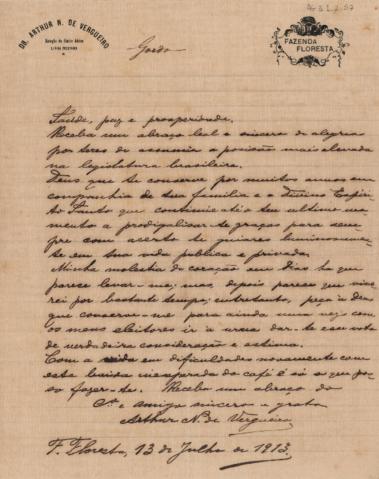 DR. ARTHUR N. DE VERGUEIRO
FAZENDA
FLORESTA
Gordo
Saúde, paz e prosperidade.
Receba um abraço leal e sincero de alegria
por teres de assumir a posição mais elevada
na legislatura brasileira.
Deus que te conserve por muitos annos em
companhia de tua familia e o Divino Espiri-
to Santo que continue até o teu ultimo mo-
mento a prodigalisar-te graças para sem-
pre com acerto te guiares luminosamen-
te em tua vida publica e privada.
Minha molestia do coração em dias ha que
parece levar-me; mas, depois parece que vive-
rei por bastante tempo; entretanto, peço a Deus
que conserve-me para ainda uma vez, com
os meus eleitores ir á urna dar-te esse voto
de verdadeira consideração e estima.
Com a vida em dificuldades novamente com
esta baixa inesperada do café é só o que pos-
so fazer-te. Receba um abraço do
amigo sincero e grato
Arthur N. de Vergueiro
F. Floresta, 13 de Julho de 1913.